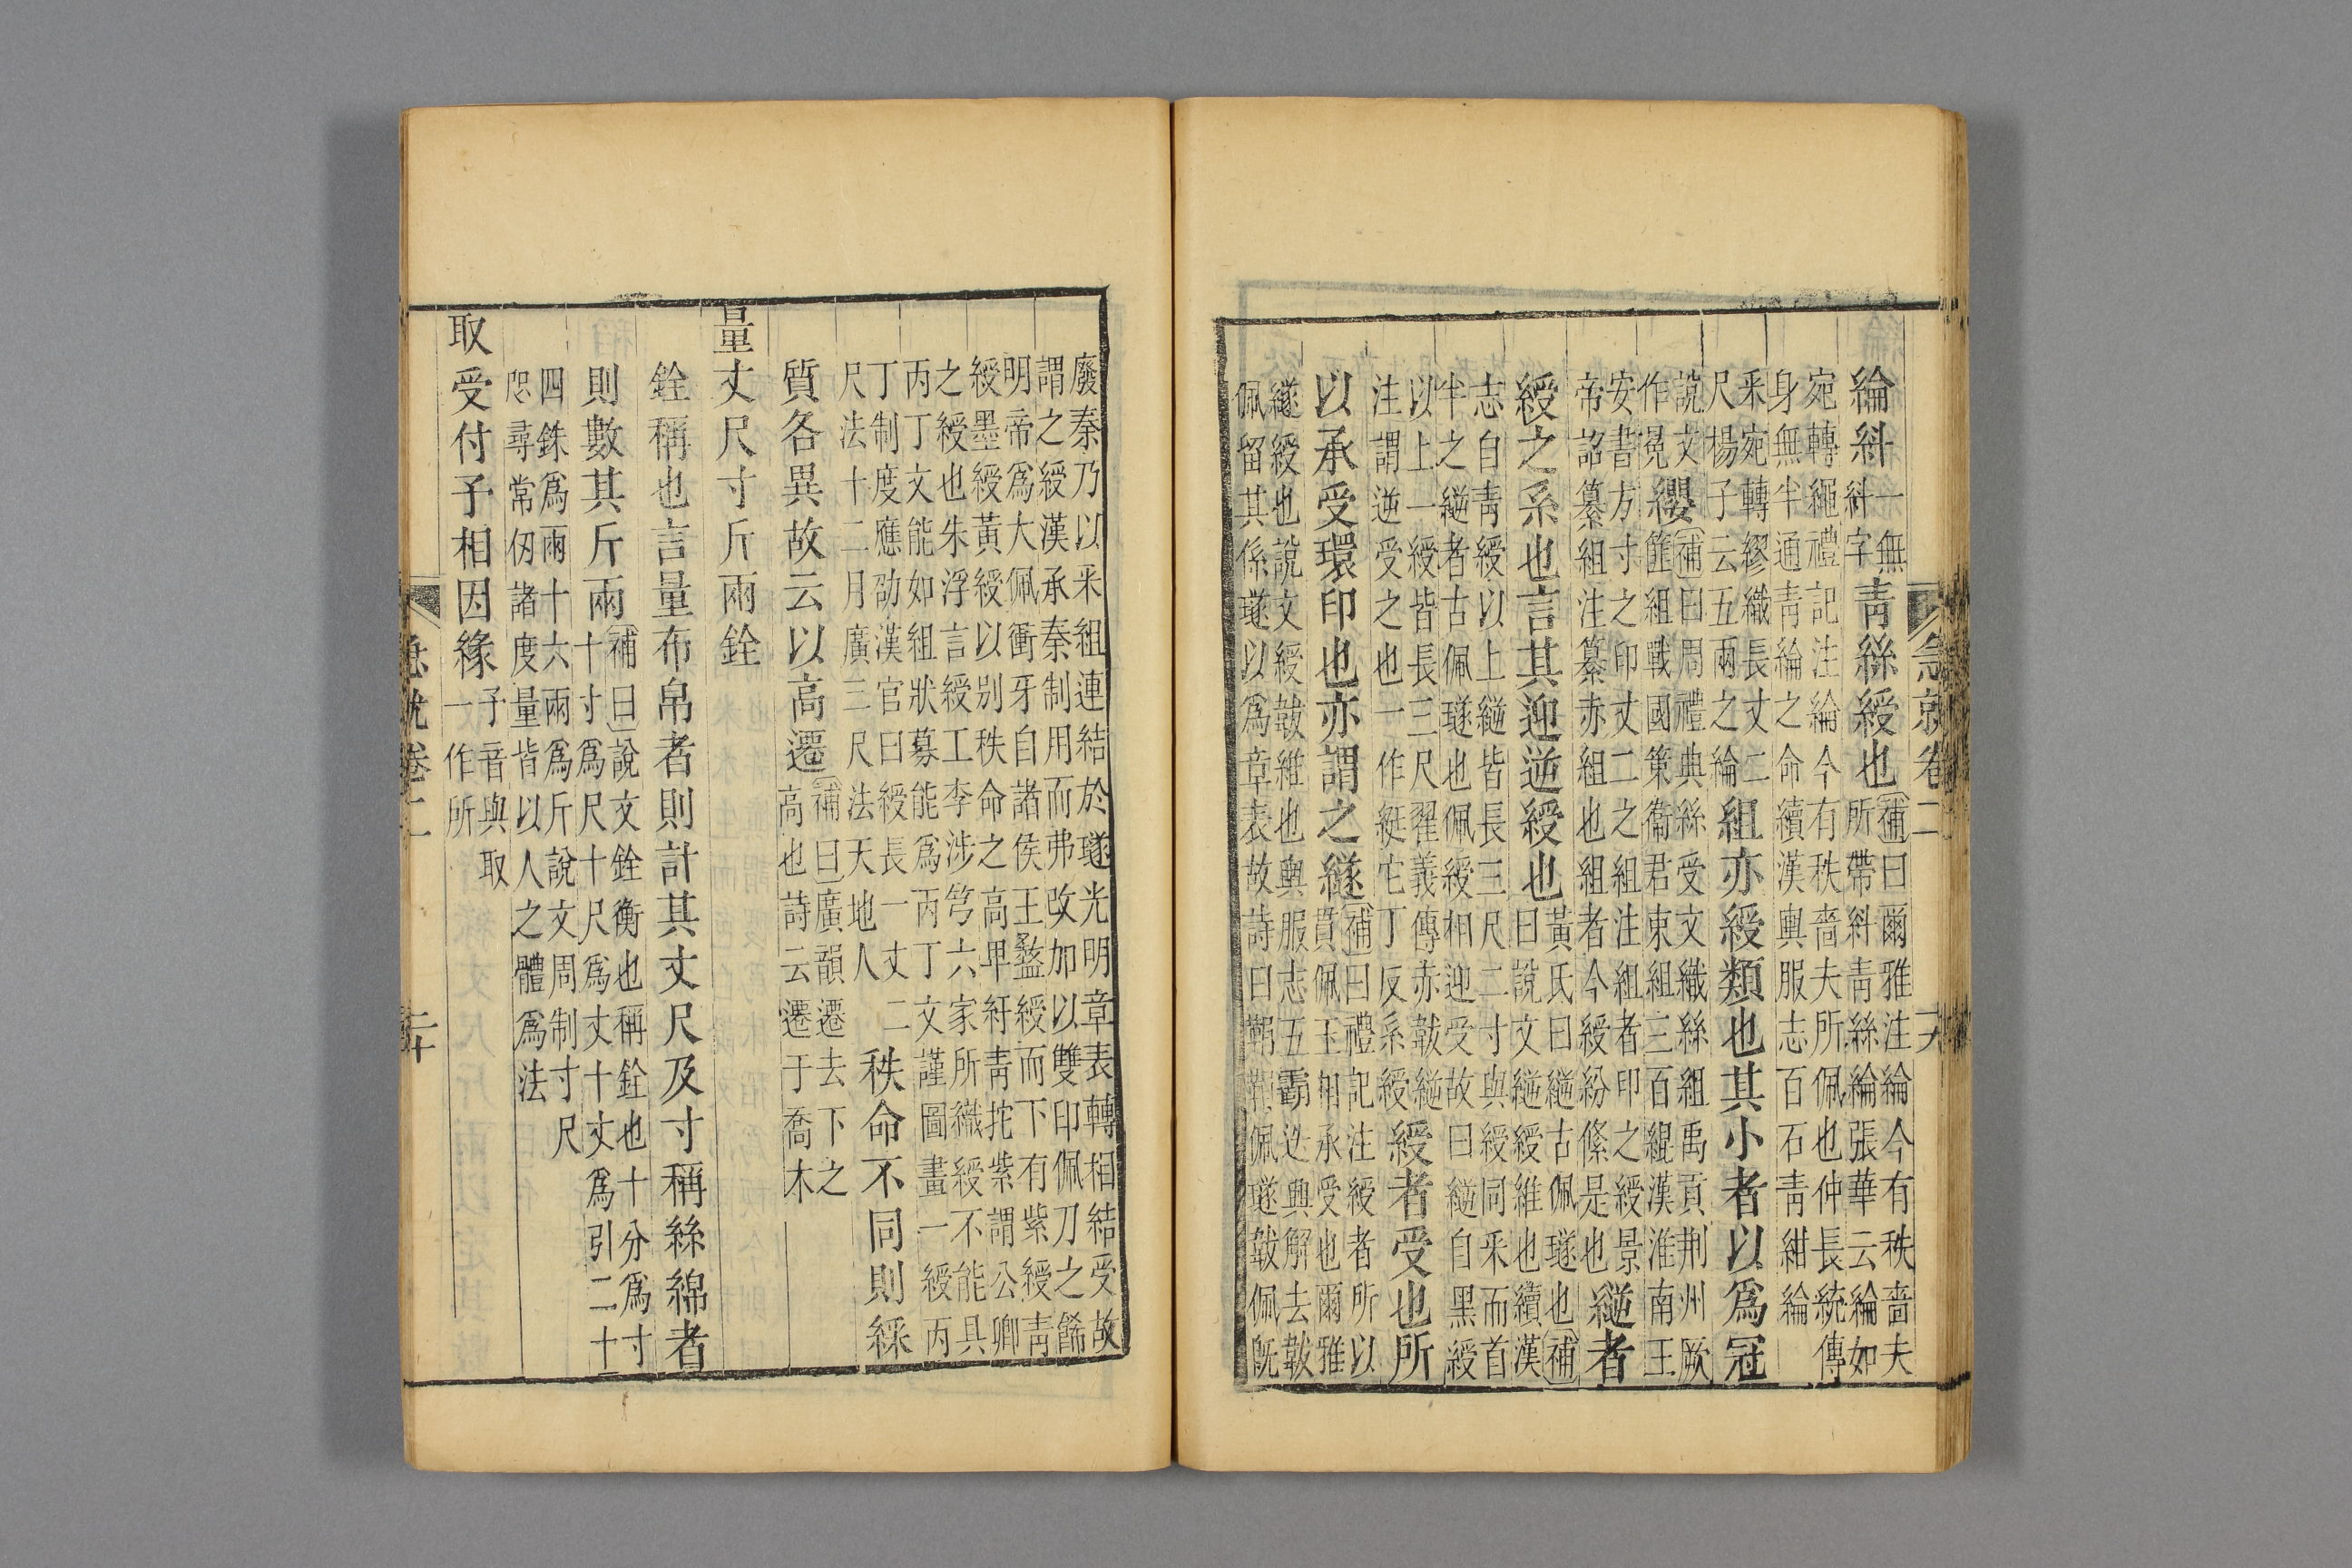 急就卷二 十九
綸紏
一無
紏字
青絲綬也
補曰爾雅注綸今有秩嗇夫
所帶紏青絲綸張華云綸如
宛轉繩禮記注綸今有秩嗇夫所佩也仲長統傳
身無半通青綸之命續漢輿服志百石青紺綸
采宛轉繆織長丈二
尺楊子云五兩之綸
組亦綬類也其小者以爲冠
說文
作冕
纓
補曰周禮典絲受文織絲組禹貢荆州厥
篚組戰國策衞君束組三百緄漢淮南王
安書方寸之印丈二之組注組者印之綬景
帝詔纂組注纂赤組也組者今綬紛絛是也
縌者
綬之系也言其迎逆綬也
黃氏曰縌古佩璲也補
曰說文縌綬維也續漢
志自青綬以上縌皆長三尺二寸與綬同采而首
半之縌者古佩璲也佩綬相迎受故曰縌自黑綬
以上一綬皆長三尺翟義傳亦韍縌
注謂逆受之也一作綎它丁反系綬
綬者受也所
以承受環印也亦謂之繸
補曰禮記注綬者所以
貫佩玉相承受也爾雅
繸綬也說文綬韍維也輿服志五霸迭興解去韍
佩留其係璲以爲章表故詩曰鞙鞙佩璲韍佩旣
廢秦乃以采組連結於璲光明章表轉相結受故
謂之綬漢承秦制用而弗改加以雙印佩刀之餙
明帝爲大佩衝牙自諸侯王盭綬而下有紫綬青
綬墨綬黃綬以別秩命之高卑紆青拕紫謂公卿
之綬也朱浮言綬工李涉笉六家所織綬不能具
丙丁文能如組狀募能爲丙丁文謹圖畫一綬丙
丁制度應劭漢官曰綬長一丈二
尺法十二月廣三尺法天地人
秩命不同則綵
質各異故云以高遷
補曰廣韻遷去下之
高也詩云遷于喬木
量丈尺寸斤兩銓
銓稱也言量布帛者則計其丈尺及寸稱絲綿者
則數其斤兩
補曰說文銓衡也稱銓也十分爲寸
十寸爲尺十尺爲丈十丈爲引二十
四銖爲兩十六兩爲斤說文周制寸尺
咫尋常仞諸度量皆以人之體爲法
取受付予相因緣
予音與取
一作所
急就卷二 二十